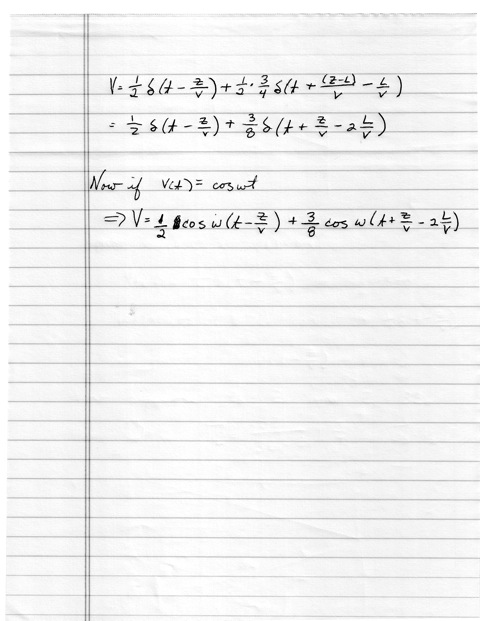 V = 1/2 δ(t - z/v) + 1/2 · 3/4 δ(t + (z-L)/v - L/v)
= 1/2 δ(t - z/v) + 3/8 δ(t + z/v - 2 L/v)
Now if v(t) = cos ωt
⇒ V = 1/2 cos ω(t - z/v) + 3/8 cos ω(t + z/v - 2 L/v)